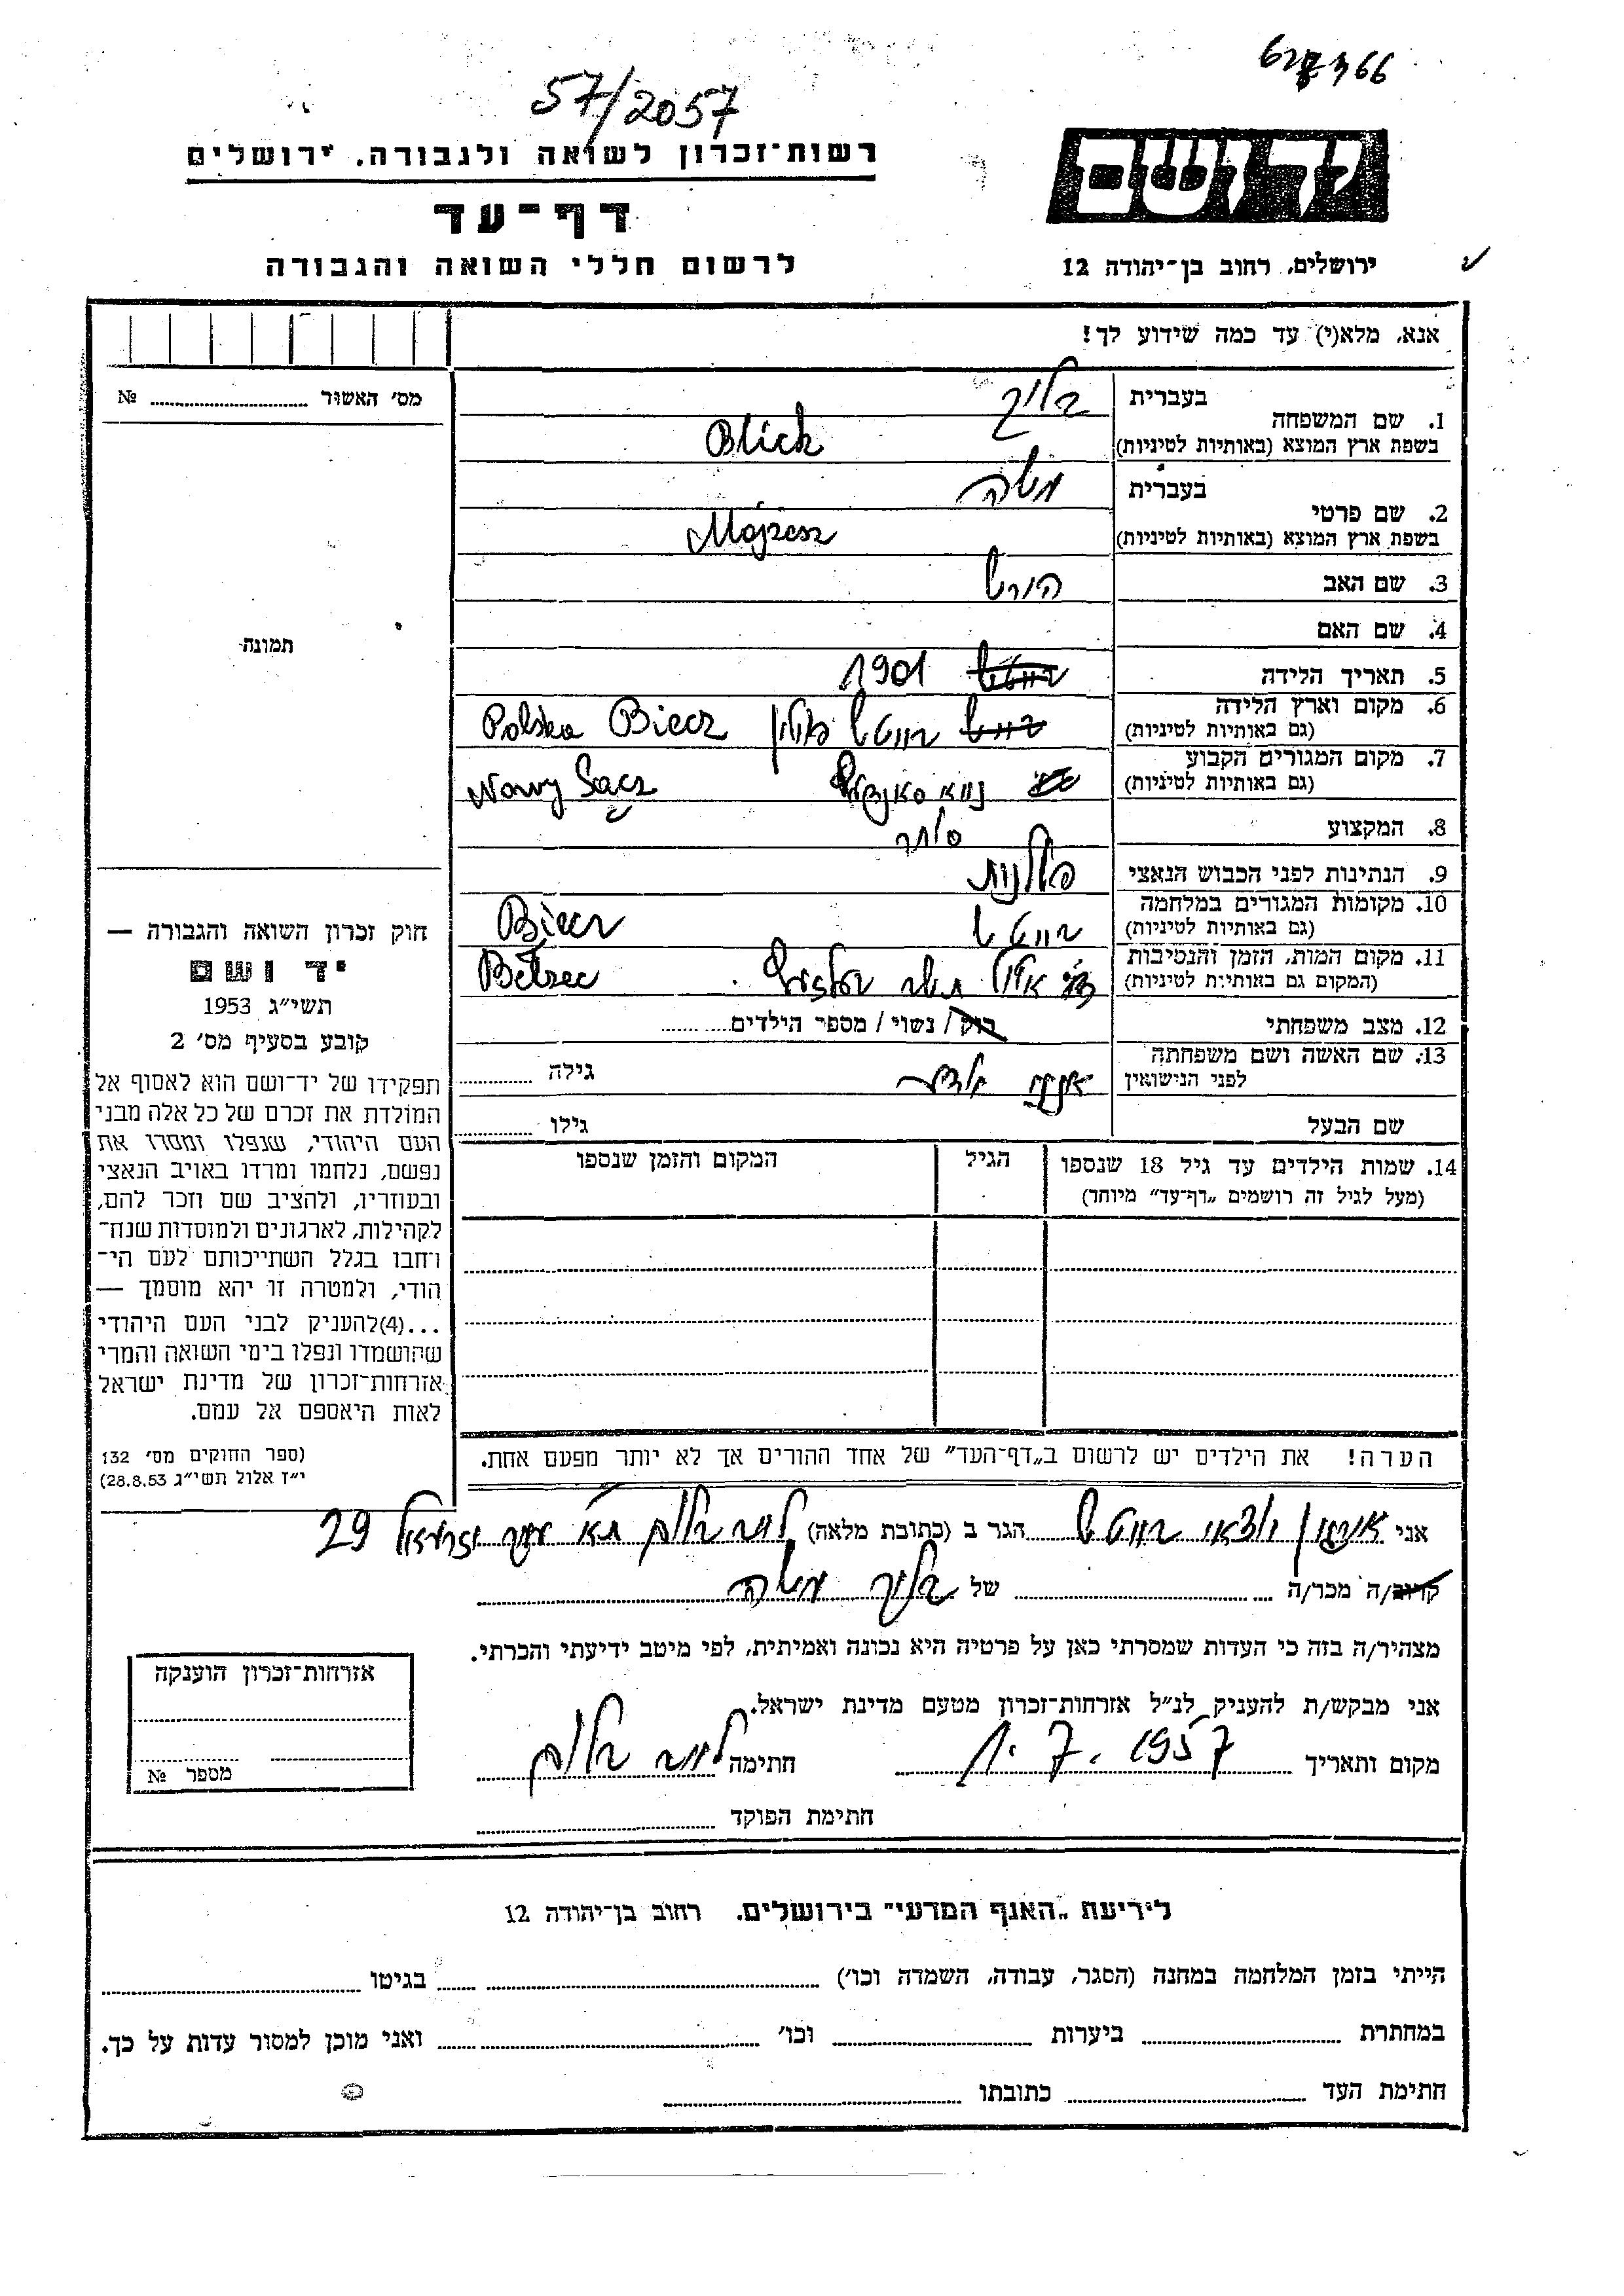 57/2057
רשות־זכרון לשואה ולגבורה, ירושלים
דף־עד
לרשום חללי השואה והגבורה
יד ושם
ירושלים, רחוב בן־יהודה 12
אנא, מלא(י) עד כמה שידוע לך!
מס׳ האשור № 
1. שם המשפחה
בעברית בליך
בשפת ארץ המוצא (באותיות לטיניות) Blich
2. שם פרטי
בעברית משה
בשפת ארץ המוצא (באותיות לטיניות) Mojzesz
3. שם האב הירש
4. שם האם
5. תאריך הלידה 1901
6. מקום וארץ הלידה
(גם באותיות לטיניות) בייטש פולין Biecz Polska
7. מקום המגורים הקבוע
(גם באותיות לטיניות) Nowy Sącz
8. המקצוע סוחר
9. הנתינות לפני הכבוש הנאצי פולנית
10. מקומות המגורים במלחמה
(גם באותיות לטיניות) בייטש Biecz
11. מקום המות, הזמן והנסיבות
(המקום גם באותיות לטיניות) Bełzec
12. מצב משפחתי רווק / נשוי / מספר הילדים
13. שם האשה ושם משפחתה
לפני הנישואין גילה
שם הבעל גילו
14. שמות הילדים עד גיל 18 שנספו
(מעל לגיל זה רושמים „דף־עד״ מיוחד)
הגיל
המקום והזמן שנספו
הערה! את הילדים יש לרשום ב„דף־העד״ של אחד ההורים אך לא יותר מפעם אחת.
תמונה
חוק זכרון השואה והגבורה —
יד ושם
תשי״ג 1953
קובע בסעיף מס׳ 2
תפקידו של יד־ושם הוא לאסוף אל
המולדת את זכרם של כל אלה מבני
העם היהודי, שנפלו ומסרו את
נפשם, נלחמו ומרדו באויב הנאצי
ובעוזריו, ולהציב שם וזכר להם,
לקהילות, לארגונים ולמוסדות שנח־
רחבו בגלל השתייכותם לעם הי־
הודי, ולמטרה זו יהא מוסמך —
...(4)להעניק לבני העם היהודי
שהושמדו ונפלו בימי השואה והמרי
אזרחות־זכרון של מדינת ישראל
לאות היאספם אל עמם.
(ספר החוקים מס׳ 132
י״ז אלול תשי״ג 28.8.53)
אני ארגון יוצאי בייטש הגר ב (כתובת מלאה) 29
קרוב/ה מכר/ה של בליך משה
מצהיר/ה בזה כי העדות שמסרתי כאן על פרטיה היא נכונה ואמיתית, לפי מיטב ידיעתי והכרתי.
אני מבקש/ת להעניק לנ״ל אזרחות־זכרון מטעם מדינת ישראל.
מקום ותאריך 1.7.1957 חתימה
חתימת הפוקד
אזרחות־זכרון הוענקה
מספר №
לידיעת „האגף המדעי״ בירושלים, רחוב בן־יהודה 12
הייתי בזמן המלחמה במחנה (הסגר, עבודה, השמדה וכו׳) בגיטו
במחתרת ביערות וכו׳ ואני מוכן למסור עדות על כך.
חתימת העד כתובתו